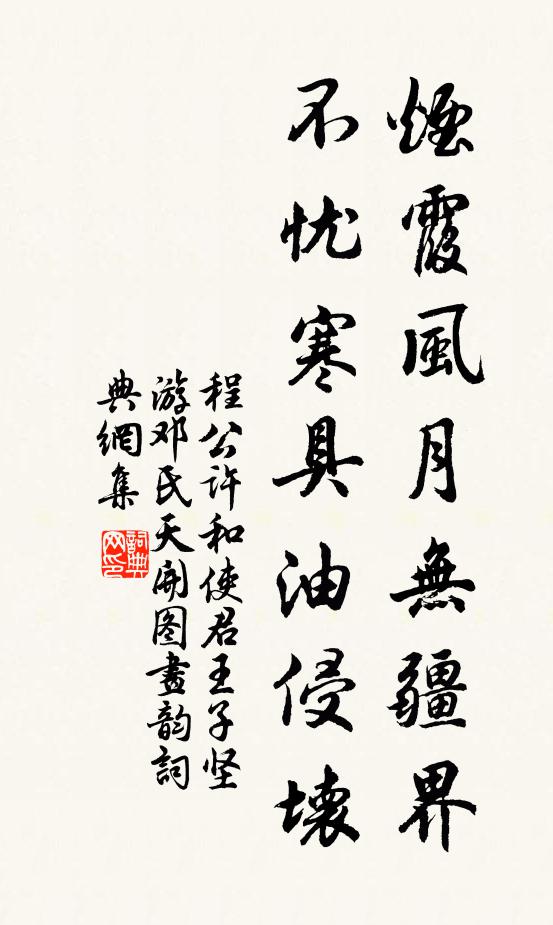 煙霞風月無疆界
不忧寒具油侵壞
程公许和使君王子坚
游邓氏天開图畫韵詞
典網集
詞典网印